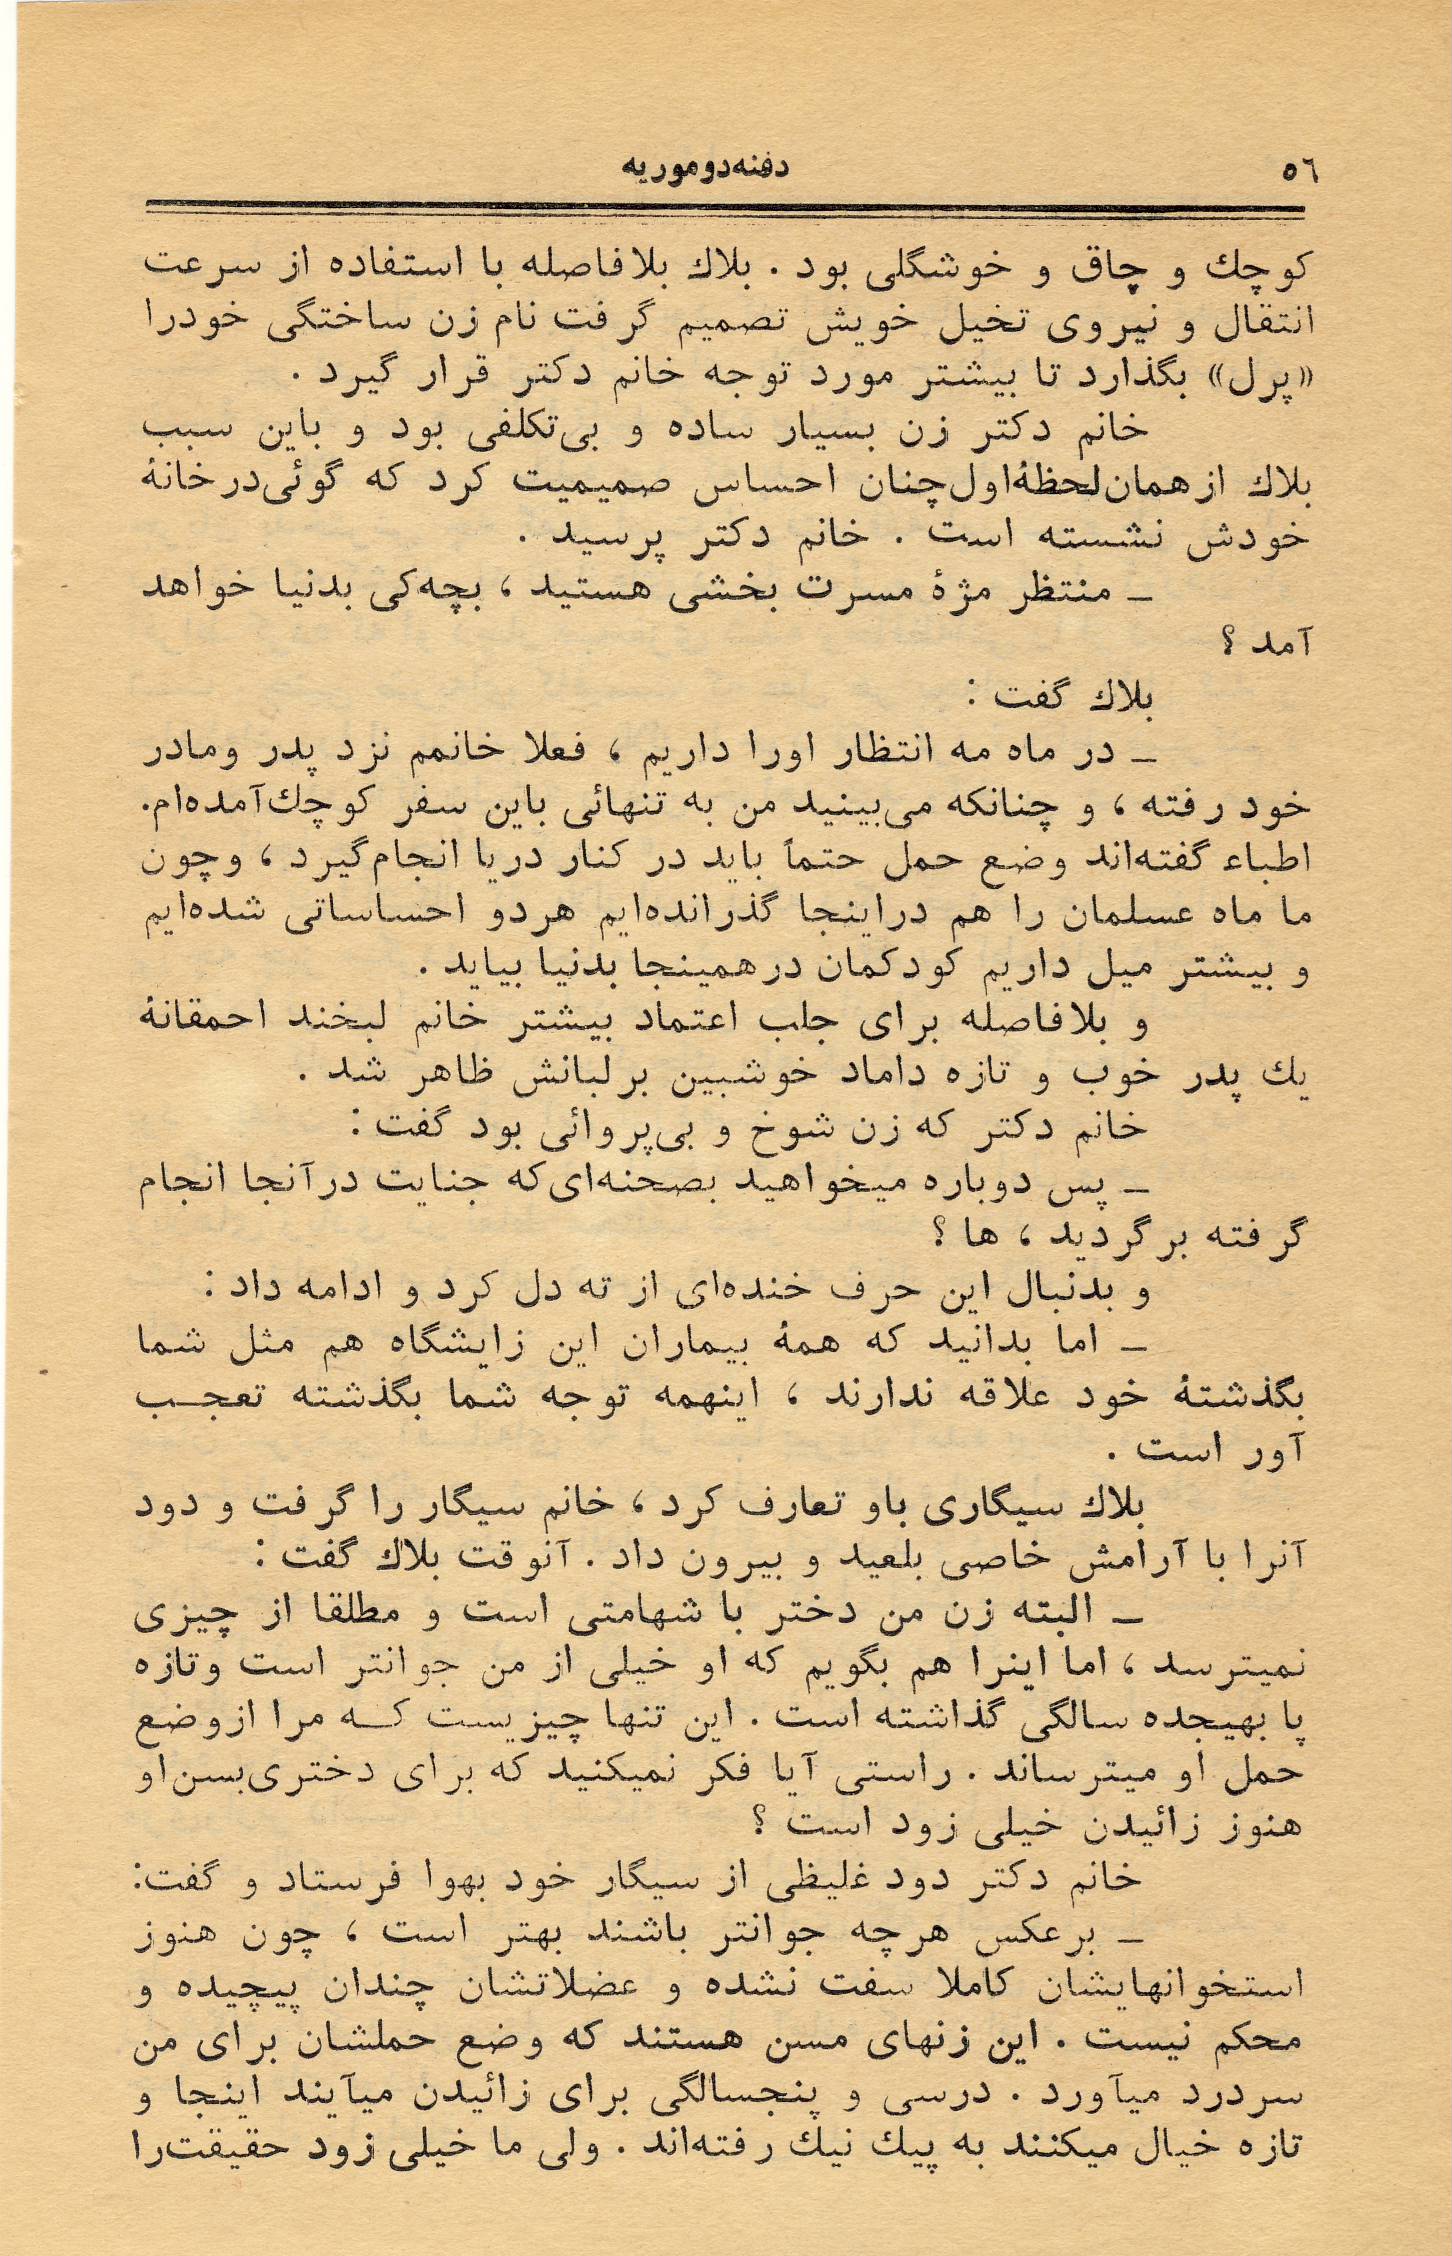 ٥٦
دفنه‌دوموریه
كوچك و چاق و خوشگلی بود . بلاك بلافاصله با استفاده از سرعت
انتقال و نیروی تخیل خویش تصمیم گرفت نام زن ساختگی خودرا
«پرل» بگذارد تا بیشتر مورد توجه خانم دكتر قرار گیرد .
خانم دكتر زن بسیار ساده و بی‌تكلفی بود و باین سبب
بلاك ازهمان‌لحظۀاول‌چنان احساس صمیمیت كرد كه گوئی‌درخانۀ
خودش نشسته است . خانم دكتر پرسید .
ـ منتظر مژۀ مسرت بخشی هستید ، بچه‌كی بدنیا خواهد
آمد ؟
بلاك گفت :
ـ در ماه مه انتظار اورا داریم ، فعلا خانمم نزد پدر ومادر
خود رفته ، و چنانكه می‌بینید من به تنهائی باین سفر كوچك‌آمده‌ام.
اطباء گفته‌اند وضع حمل حتماً باید در كنار دریا انجام‌گیرد ، وچون
ما ماه عسلمان را هم دراینجا گذرانده‌ایم هردو احساساتی شده‌ایم
و بیشتر میل داریم كودكمان درهمینجا بدنیا بیاید .
و بلافاصله برای جلب اعتماد بیشتر خانم لبخند احمقانۀ
یك پدر خوب و تازه داماد خوشبین برلبانش ظاهر شد .
خانم دكتر كه زن شوخ و بی‌پروائی بود گفت :
ـ پس دوباره میخواهید بصحنه‌ای‌كه جنایت درآنجا انجام
گرفته برگردید ، ها ؟
و بدنبال این حرف خنده‌ای از ته دل كرد و ادامه داد :
ـ اما بدانید كه همۀ بیماران این زایشگاه هم مثل شما
بگذشتۀ خود علاقه ندارند ، اینهمه توجه شما بگذشته تعجـب
آور است .
بلاك سیگاری باو تعارف كرد ، خانم سیگار را گرفت و دود
آنرا با آرامش خاصی بلعید و بیرون داد . آنوقت بلاك گفت :
ـ البته زن من دختر با شهامتی است و مطلقا از چیزی
نمیترسد ، اما اینرا هم بگویم كه او خیلی از من جوانتر است وتازه
پا بهیجده سالگی گذاشته است . این تنها چیزیست كـه مرا ازوضع
حمل او میترساند . راستی آیا فكر نمیكنید كه برای دختری‌بسن‌او
هنوز زائیدن خیلی زود است ؟
خانم دكتر دود غلیظی از سیگار خود بهوا فرستاد و گفت:
ـ برعكس هرچه جوانتر باشند بهتر است ، چون هنوز
استخوانهایشان كاملا سفت نشده و عضلاتشان چندان پیچیده و
محكم نیست . این زنهای مسن هستند كه وضع حملشان برای من
سردرد میآورد . درسی و پنجسالگی برای زائیدن میآیند اینجا و
تازه خیال میكنند به پیك نیك رفته‌اند . ولی ما خیلی زود حقیقت‌را